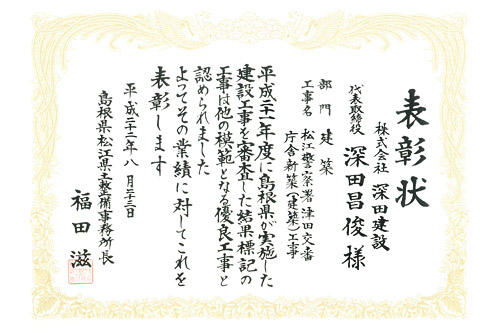 表彰状
株式会社 深田建設
代表取締役 深田昌俊様
部門 建築
工事名 松江警察署津田交番
庁舎新築(建築)工事
平成二十一年度に島根県が実施した
建設工事を審査した結果標記の
工事は他の模範となる優良工事と
認められました
よってその業績に対してこれを
表彰します
平成二十二年八月二十三日
島根県松江県土整備事務所長
福田滋